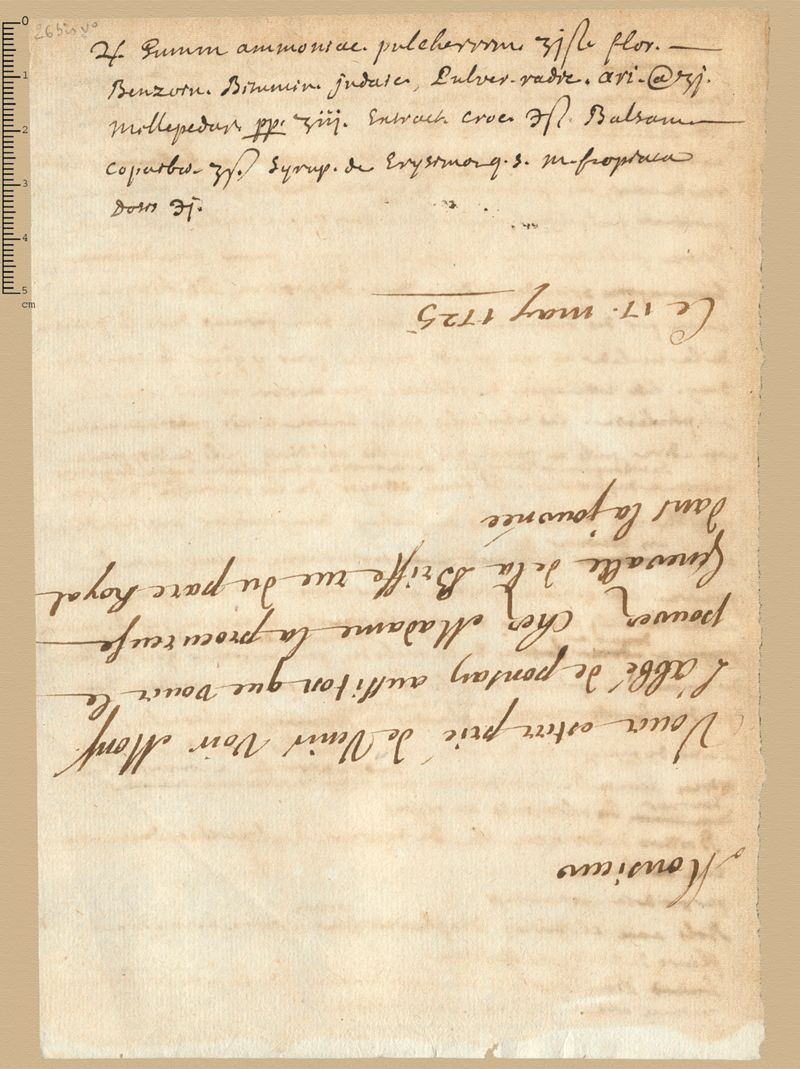 265 bis vo
♃ Gumm ammoniac. pulcherrim ʒjſs flor.
Benzoin. Bitumin. judaic, Pulver. radic. ari. @ ʒj.
Millepedar. pp. ʒiij. Extract. croc. ℈ſs. Balsam
copaibæ. ʒſs. Syrup. de Erysimo q. s. m. f. opiata
Dosis ℈j.
Monsieur
Vous estes prié de Venir Voir Monſ.
L'abbé de pontary aussitost que vous le
pouvez Chez Madame la procureuse
generalle de la Briffe rue du parc Royal
dans la journée
Ce 17. may 1725
0
1
2
3
4
5
cm